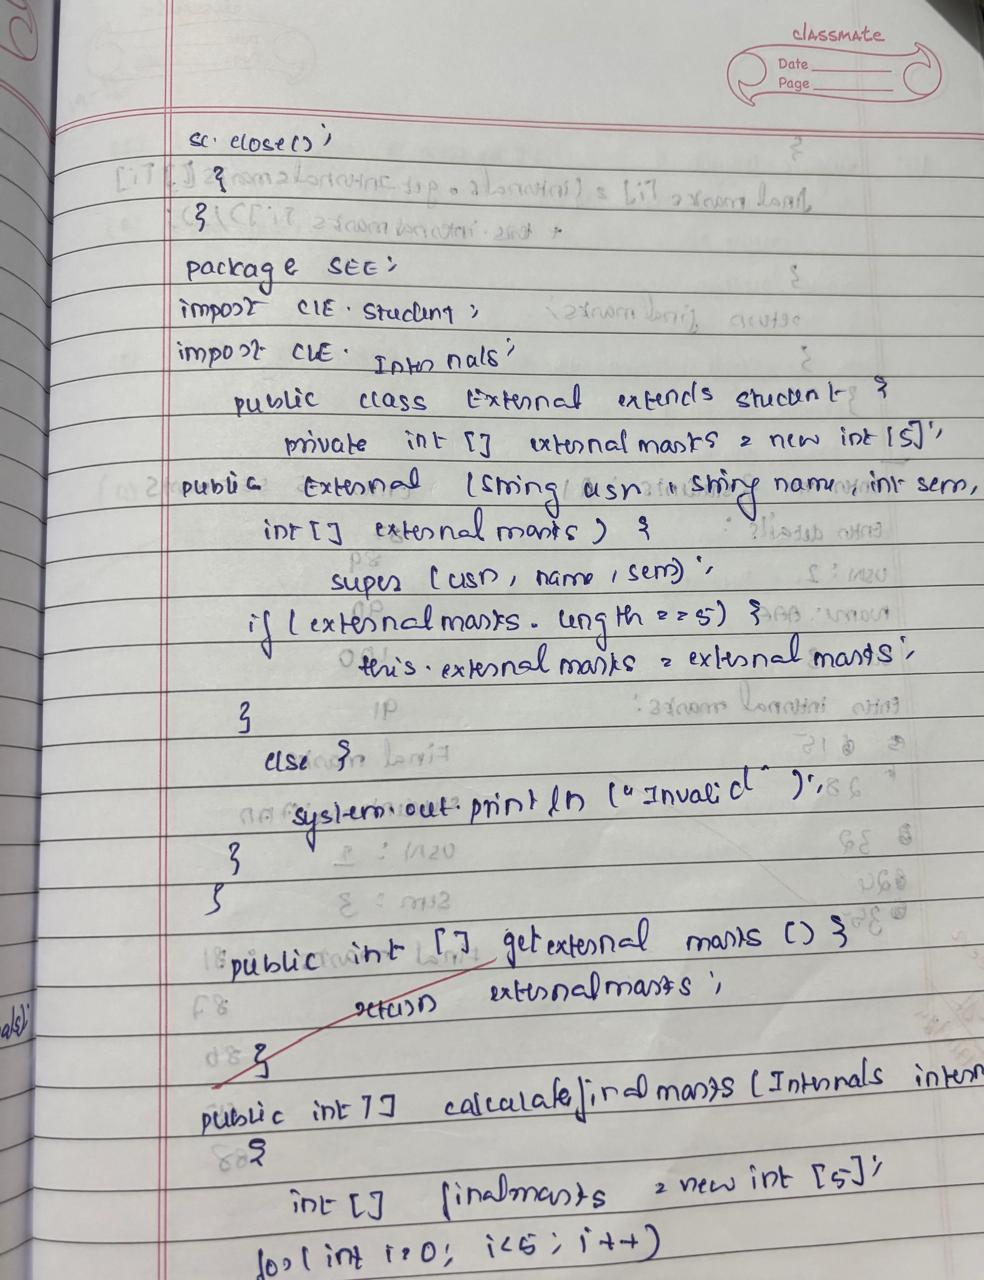 classmate
Date
Page
sc. close();
}
}
package SEE;
import CIE. Student;
import CIE. Internals;
public class External extends Student {
private int [] externalmarks = new int [5];
public External (String usn, String name, int sem,
int [] externalmarks) {
super (usn, name, sem);
if (externalmarks. length == 5) {
this. externalmarks = externalmarks;
}
else {
system.out.println ("Invalid");
}
}
public int [] getexternal marks () {
return externalmarks;
}
public int [] calculatefinalmarks (Internals intern
{
int [] finalmarks = new int [5];
for( int i=0; i<5; i++)